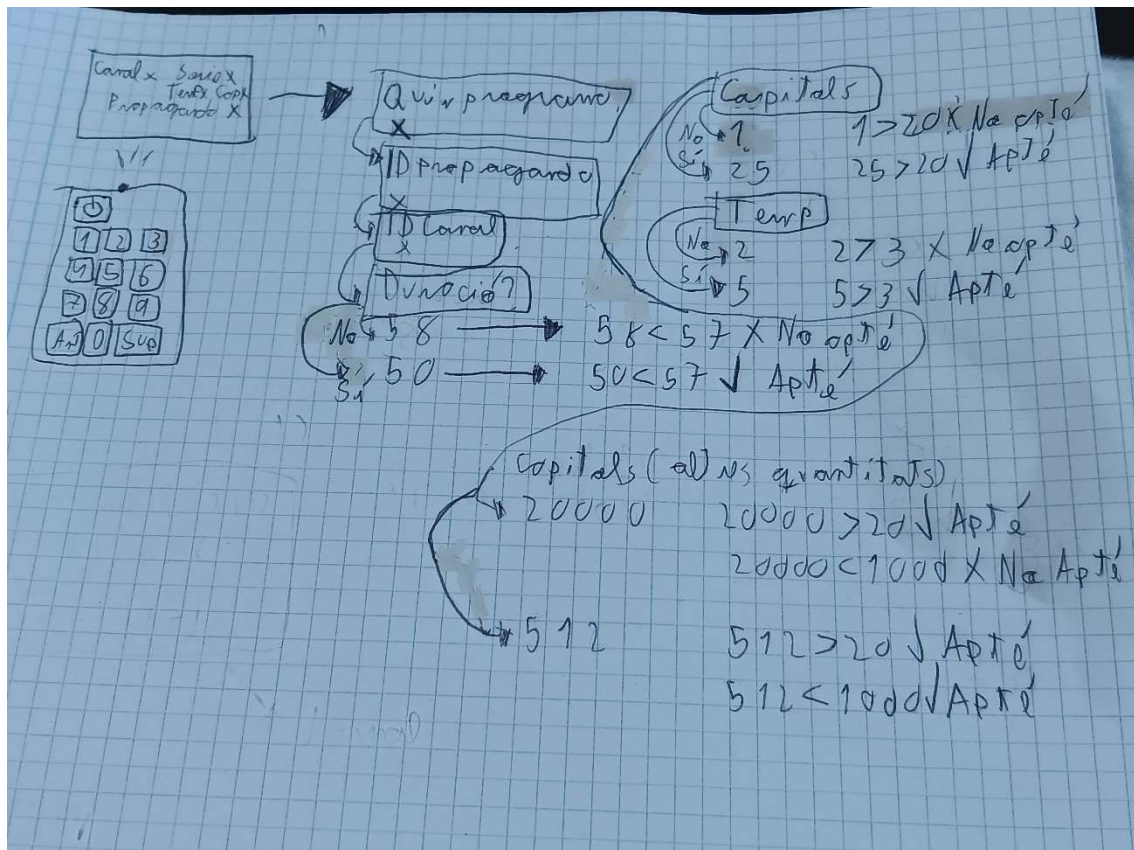 Canal x Serie x
Temx Capx
Propaganda X
1 2 3
4 5 6
7 8 9
0 SUP
Quin programa?
X
ID propaganda
X
ID Canal
X
Duració?
No 58 58<57 X No apté
Sí 50 50<57 √ Apté
Capitals
No 1 1>20 X No apté
Sí 25 25>20 √ Apté
Temp
No 2 2>3 X No apté
Sí 5 5>3 √ Apté
Capitals (altres quantitats)
20000 20000>20 √ Apté
20000<1000 X No Apté
512 512>20 √ Apté
512<1000 √ Apté